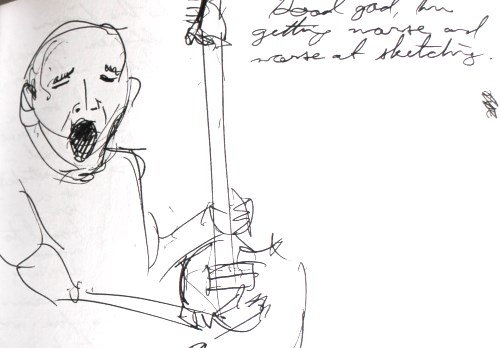 Good god, I'm
getting worse and
worse at sketching.